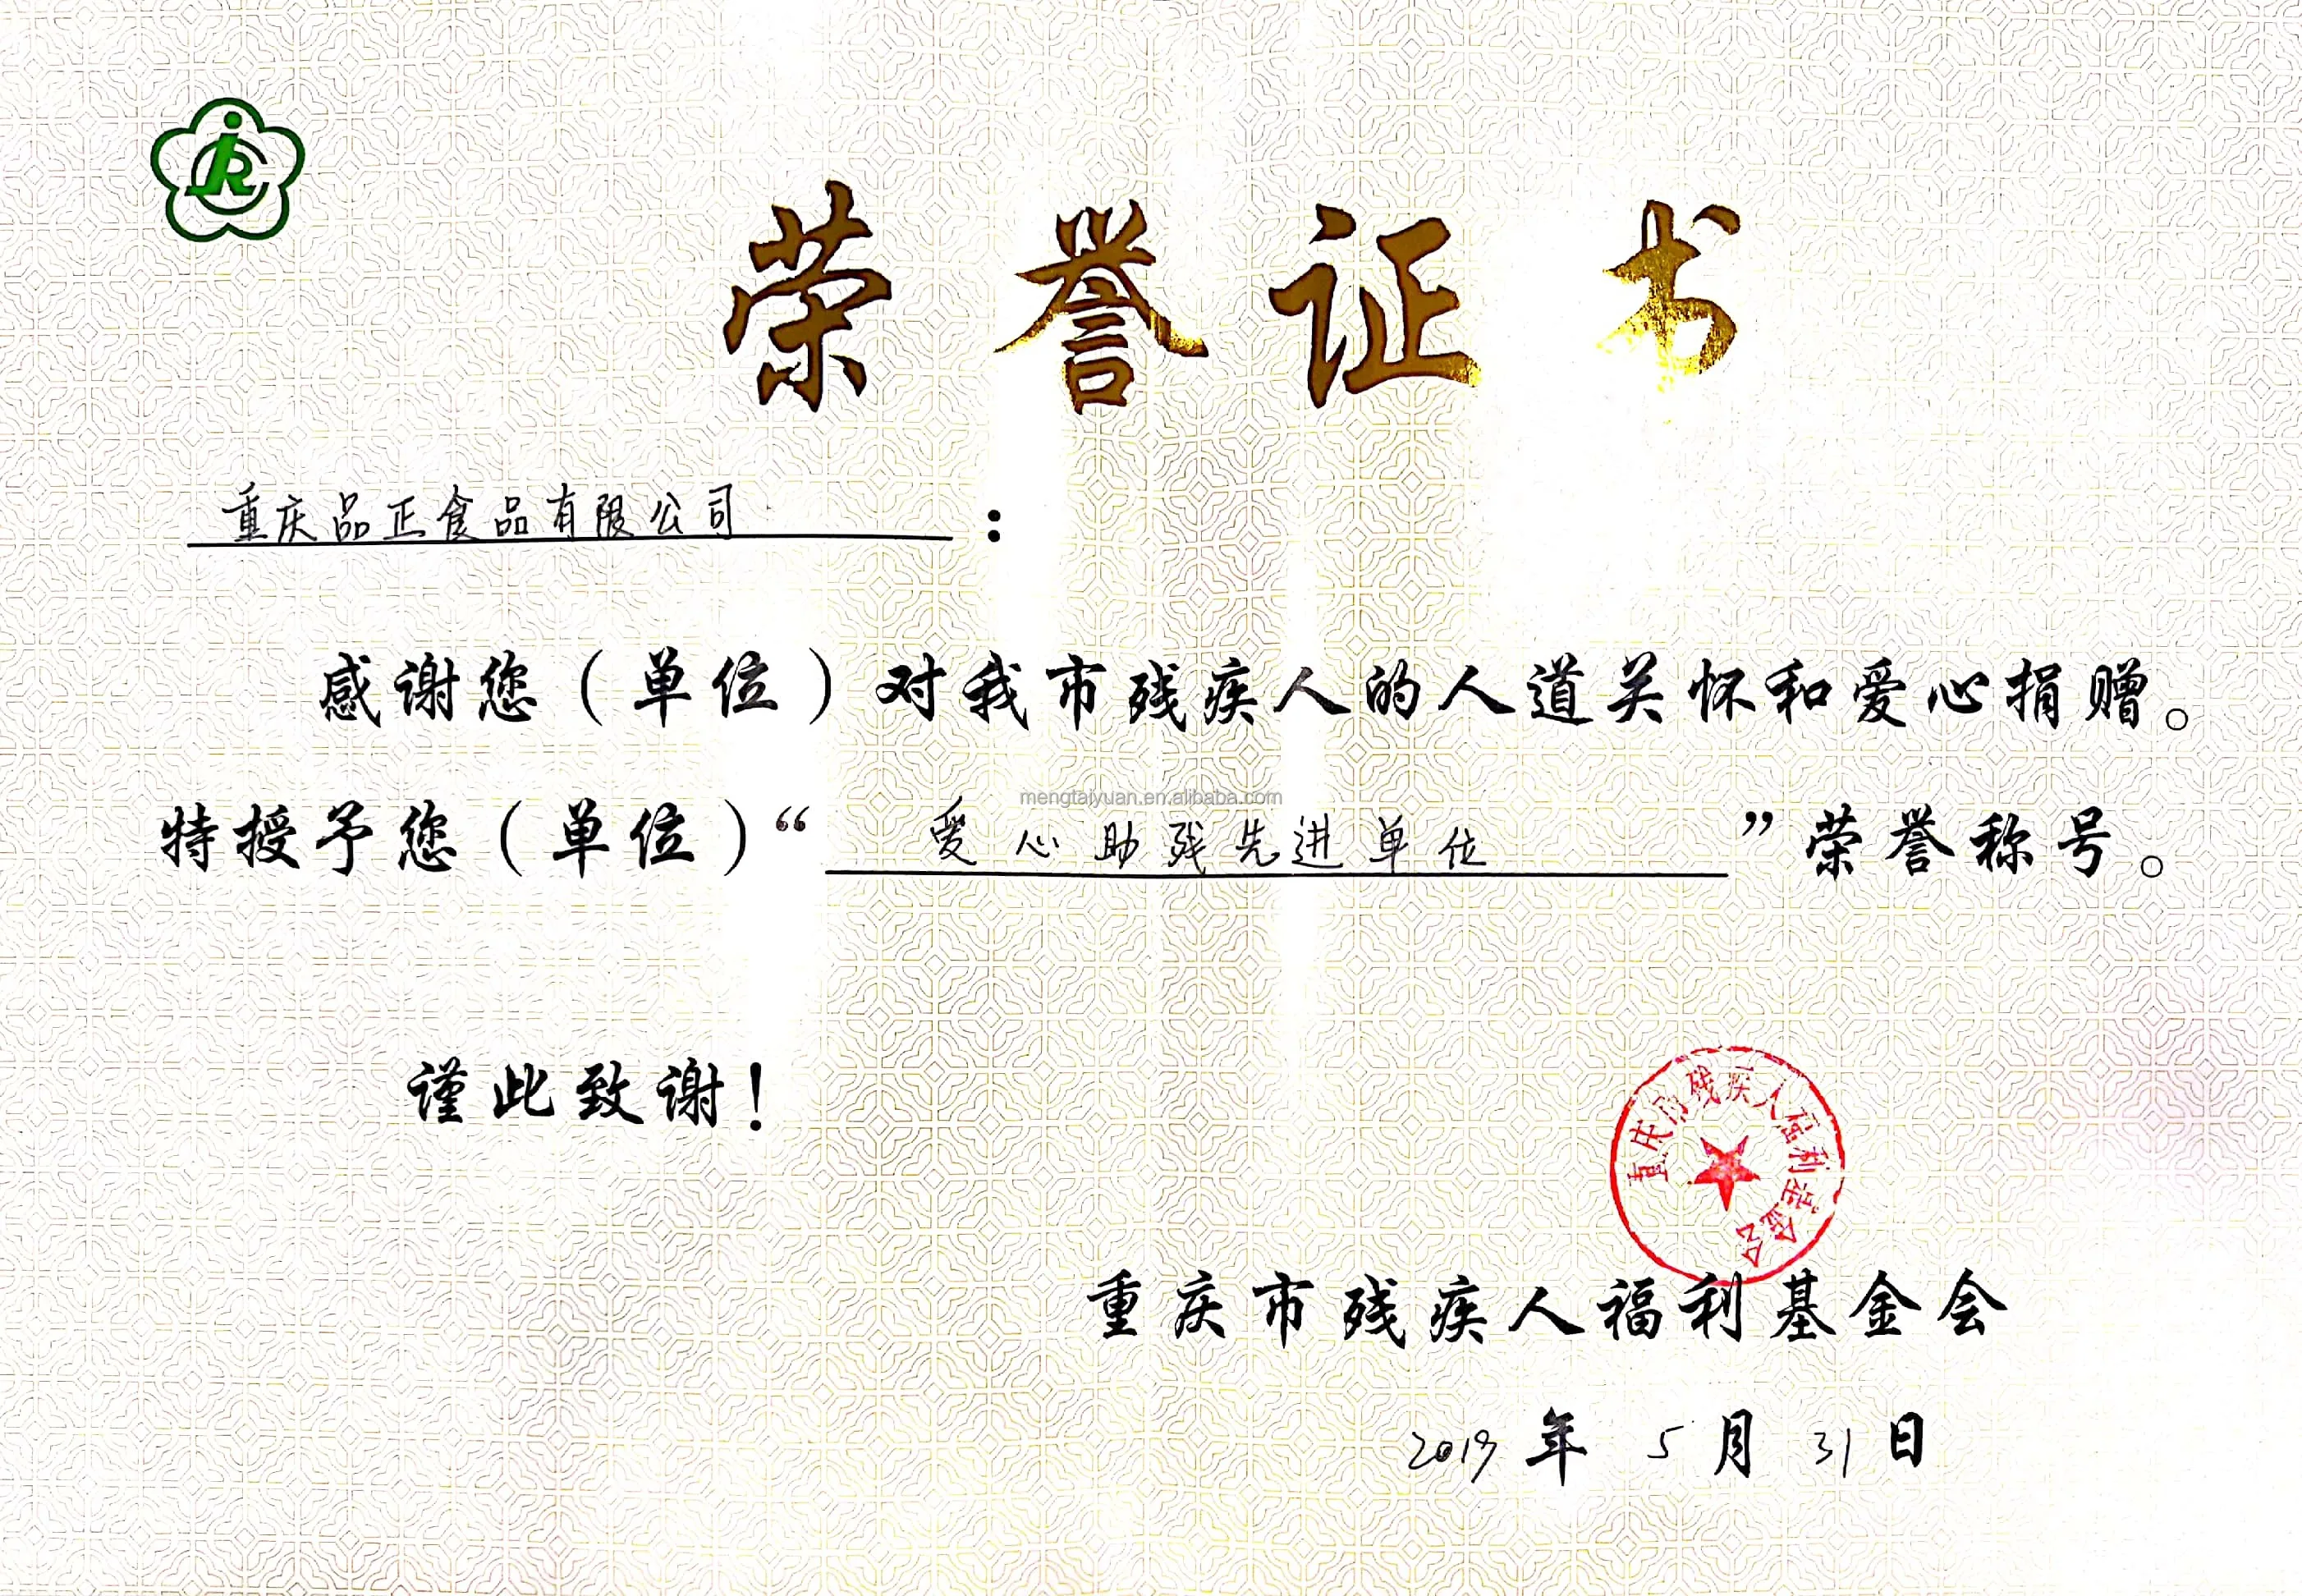 荣誉证书
重庆品正食品有限公司：
感谢您（单位）对我市残疾人的人道关怀和爱心捐赠。
特授予您（单位）“爱心助残先进单位”荣誉称号。
mengtaiyuan.en.alibaba.com
谨此致谢！
重庆市残疾人福利基金会
重庆市残疾人福利基金会
2019年5月31日